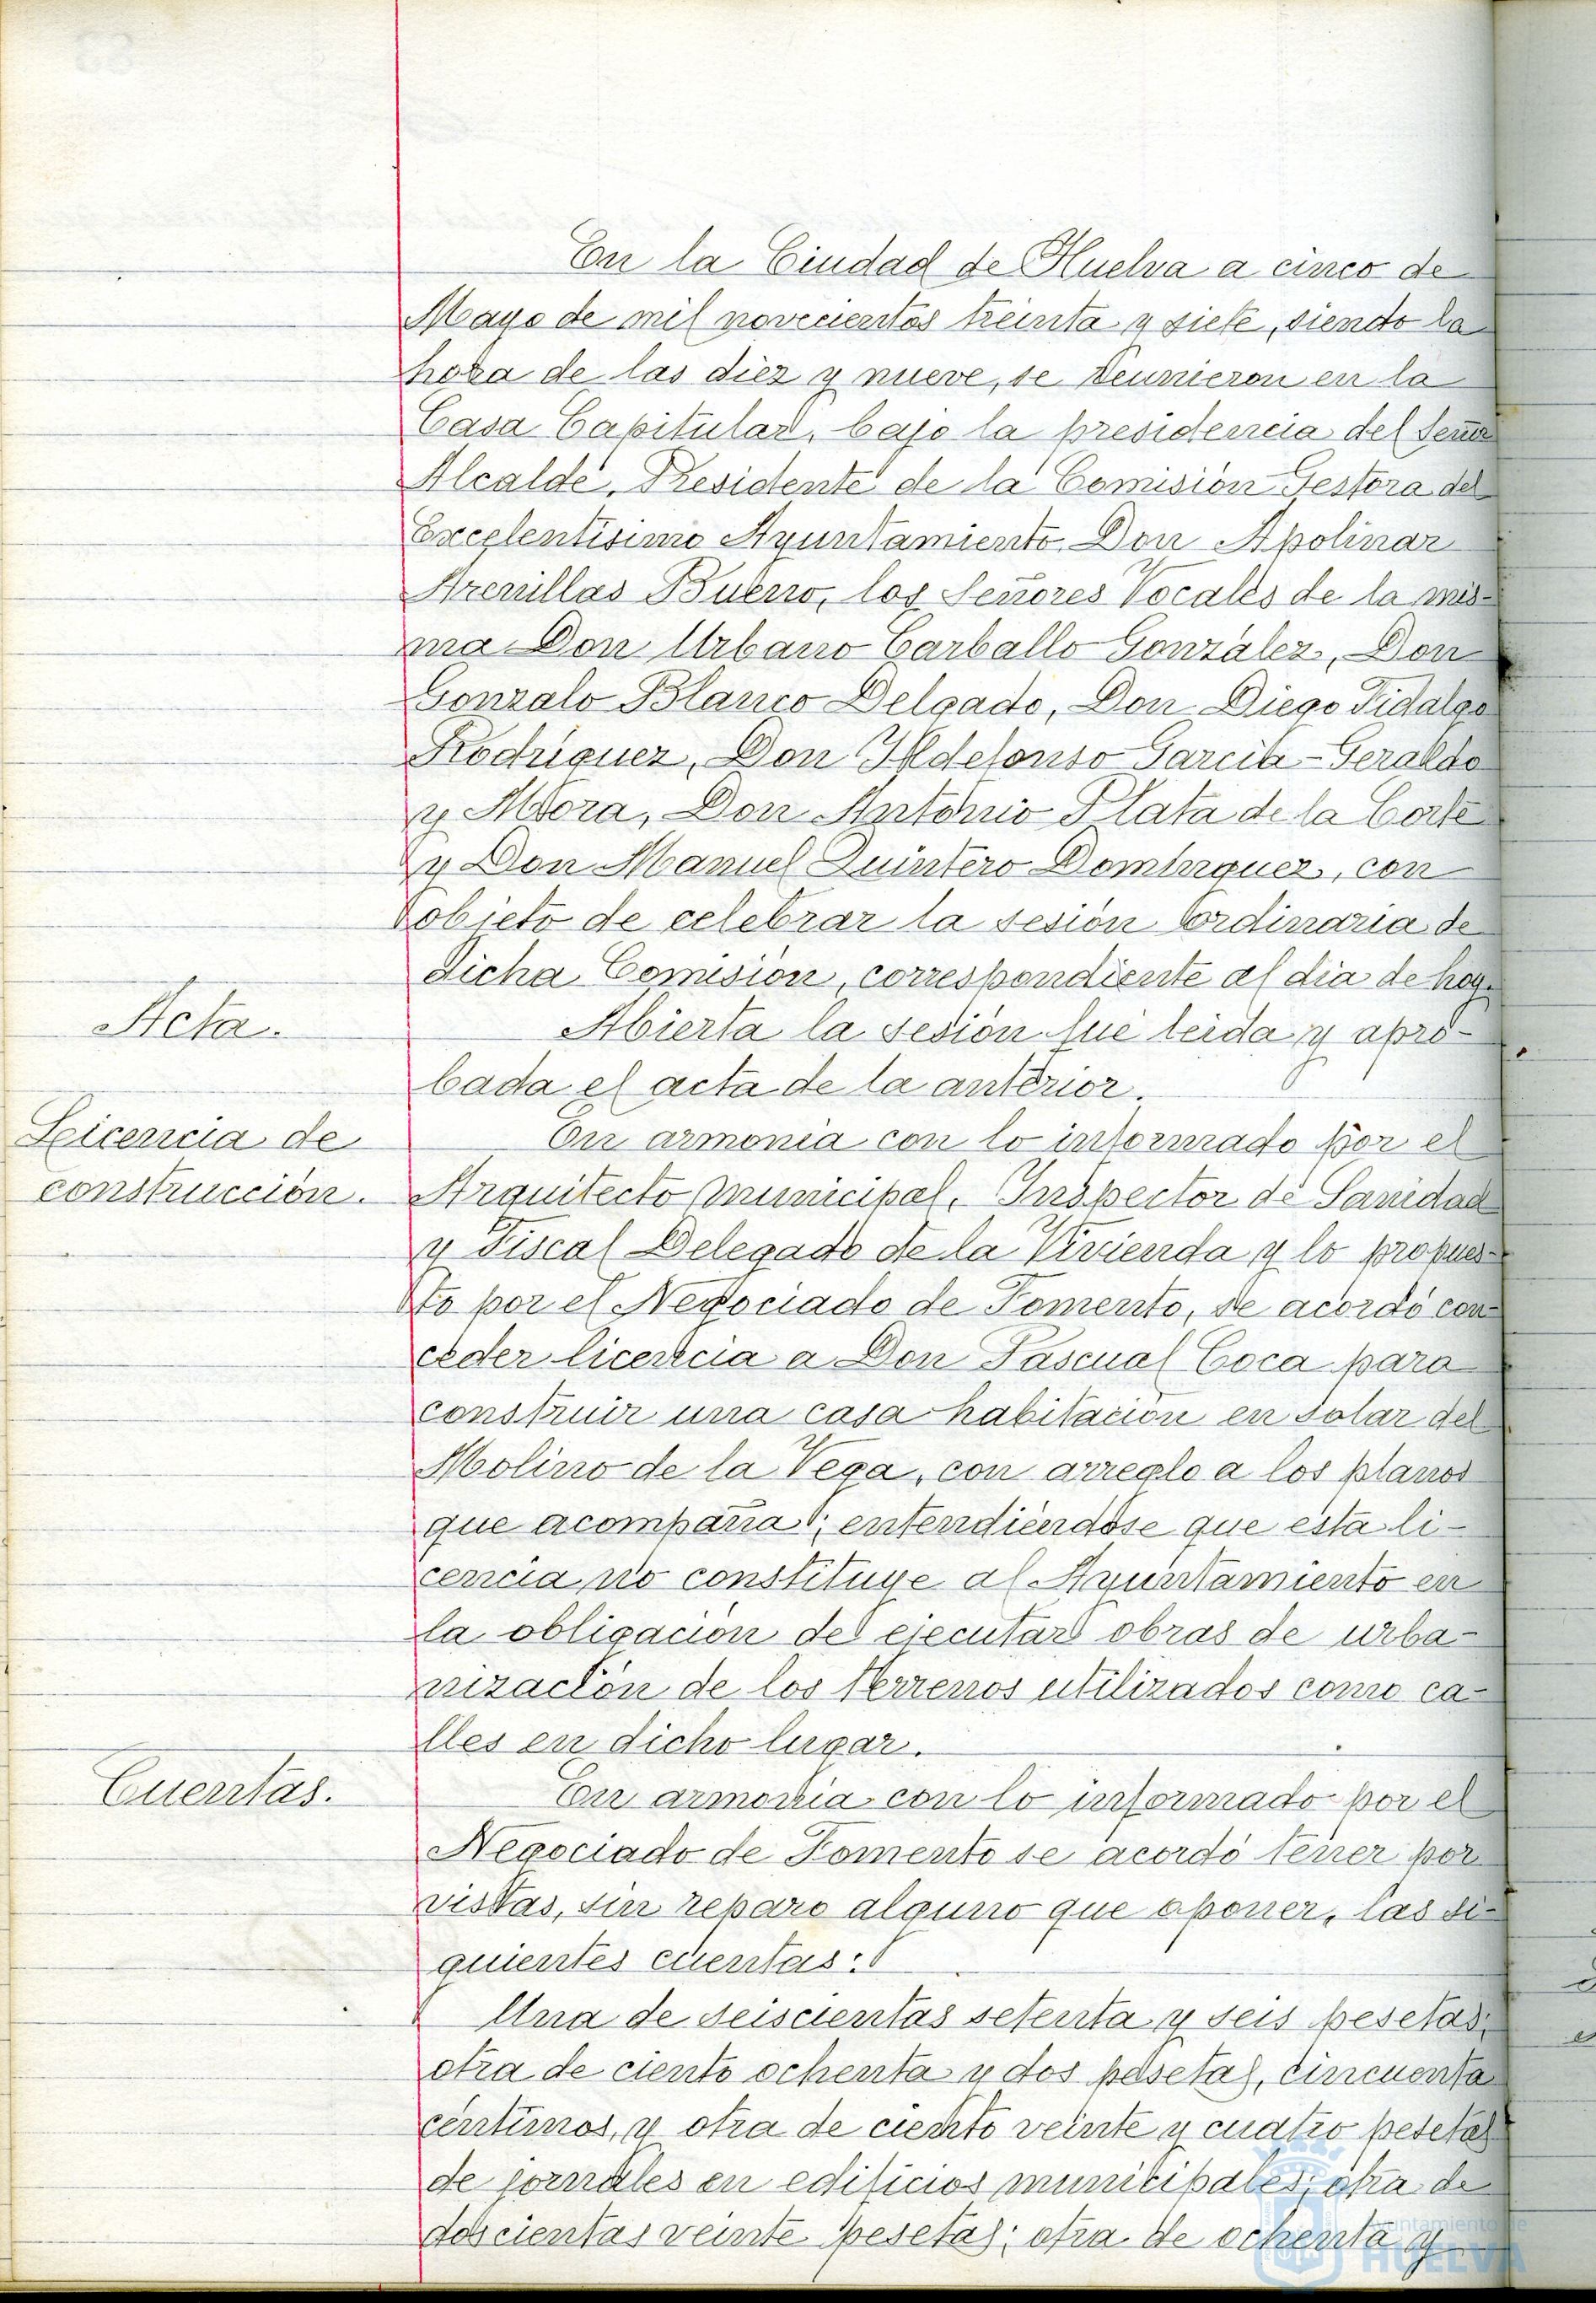 En la Ciudad de Huelva a cinco de
Mayo de mil novecientos treinta y siete, siendo la
hora de las diez y nueve, se reunieron en la
Casa Capitular, bajo la presidencia del Señor
Alcalde, Presidente de la Comisión Gestora del
Excelentísimo Ayuntamiento, Don Apolinar
Arenillas Bueno, los Señores Vocales de la mis-
ma Don Urbano Carballo González, Don
Gonzalo Blanco Delgado, Don Diego Fidalgo
Rodríguez, Don Ildefonso García-Geraldo
y Mora, Don Antonio Plata de la Corte
y Don Manuel Quintero Domínguez, con
objeto de celebrar la sesión ordinaria de
dicha Comisión, correspondiente al dia de hoy.
Acta.
Abierta la sesión fué leida y apro-
bada el acta de la anterior.
Licencia de
construcción.
En armonía con lo informado por el
Arquitecto municipal, Inspector de Sanidad
y Fiscal Delegado de la Vivienda y lo propues-
to por el Negociado de Fomento, se acordó con-
ceder licencia a Don Pascual Coca para
construir una casa habitación en solar del
Molino de la Vega, con arreglo a los planos
que acompaña; entendiéndose que esta li-
cencia no constituye al Ayuntamiento en
la obligación de ejecutar obras de urba-
nización de los terrenos utilizados como ca-
lles en dicho lugar.
Cuentas.
En armonía con lo informado por el
Negociado de Fomento se acordó tener por
vistas, sin reparo alguno que oponer, las si-
guientes cuentas:
Una de seiscientas setenta y seis pesetas;
otra de ciento ochenta y dos pesetas, cincuenta
céntimos, y otra de ciento veinte y cuatro pesetas
de jornales en edificios municipales; otra de
doscientas veinte pesetas; otra de ochenta y
Ayuntamiento de
HUELVA